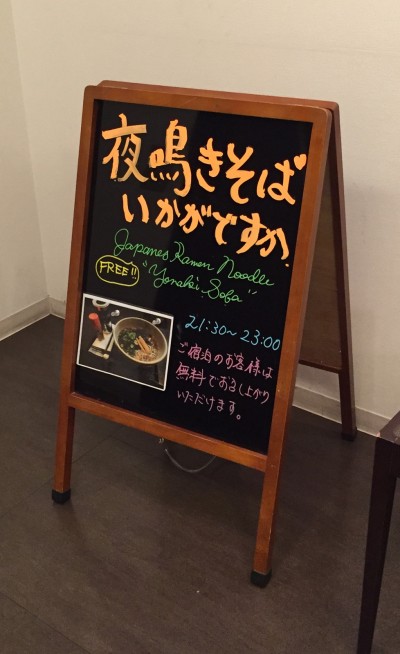 夜鳴きそば
いかがですか。
Japanes Ramen Noodle
FREE!!
"Yonaki Soba"
21:30~23:00
ご宿泊のお客様は
無料でおるし上がり
いただけます。